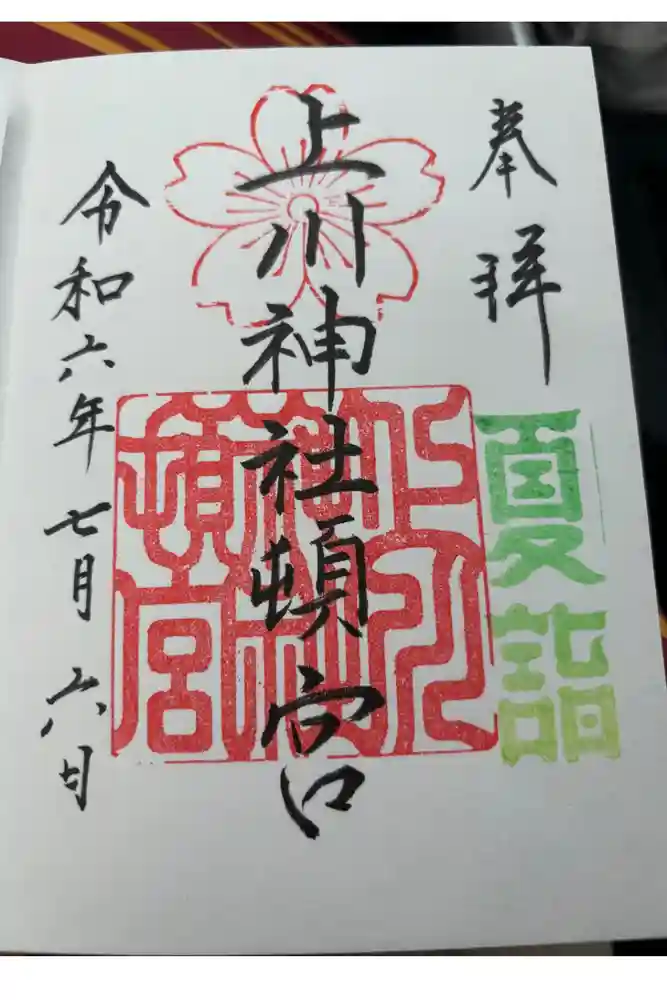 奉拝
夏詣
上川神社頓宮
上川神社頓宮
令和六年七月六日